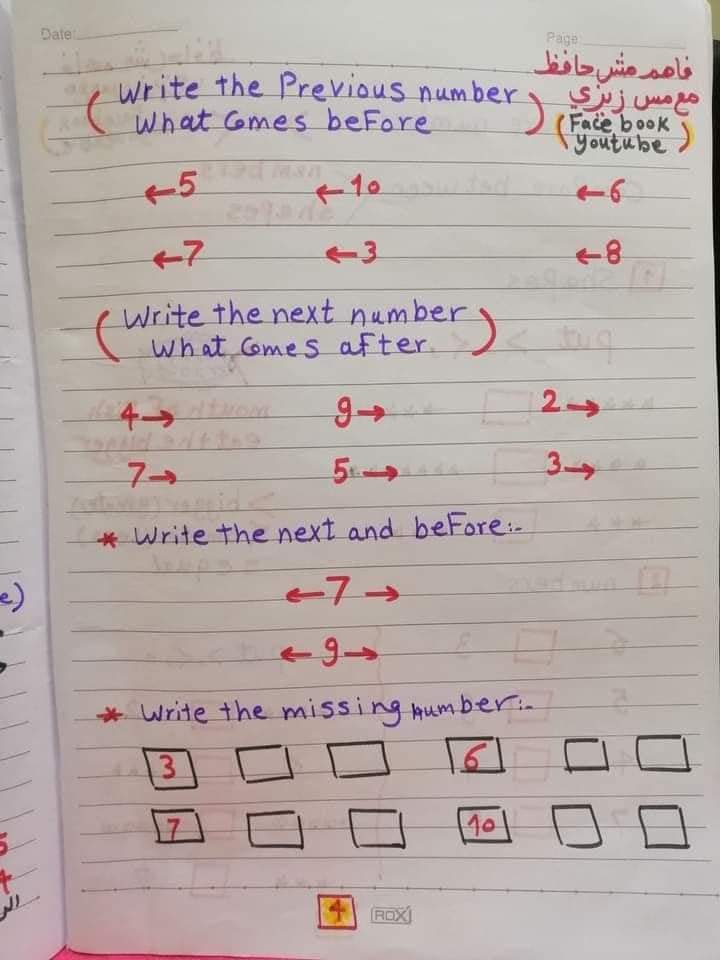 Date:
Page
فاهم مش حافظ
مع مس زيزي
(Face book
youtube)
(Write the Previous number
What Comes beFore)
←5 ←10 ←6
←7 ←3 ←8
(Write the next number
What Comes after)
4→ 9→ 2→
7→ 5→ 3→
* Write the next and beFore:-
←7→
←9→
* Write the missing number:-
3 6
7 10
4 RDX